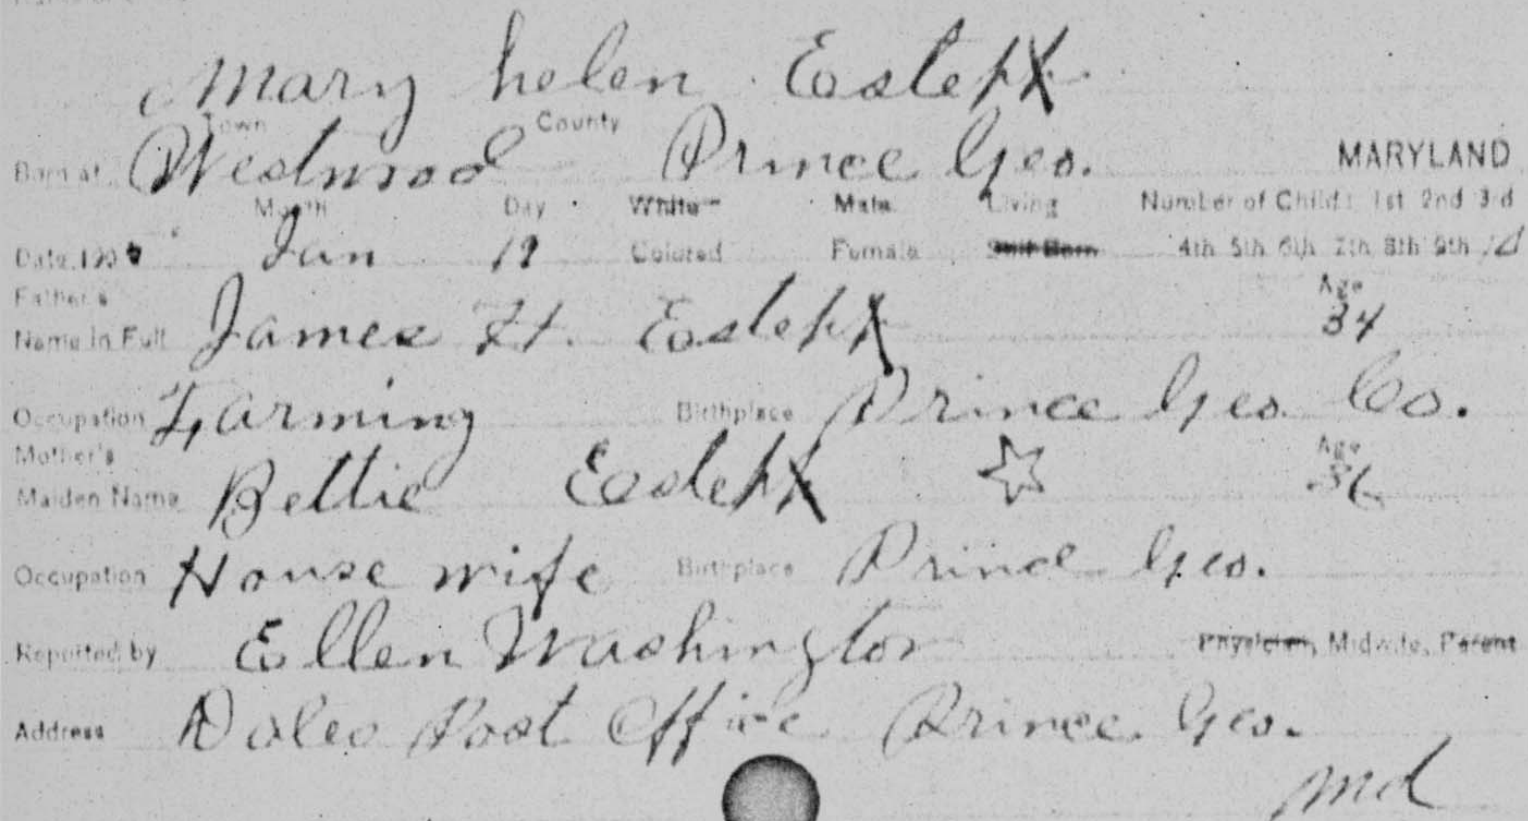 Mary helen Estep
Town County
Born at Westwood Prince Geo. MARYLAND
Month Day White Male Living Number of Child: 1st 2nd 3rd
Date, 190 Jan 19 Colored Female Still Born 4th 5th 6th 7th 8th 9th 10
Father's Age
Name in Full James H. Estep 34
Occupation Farming Birthplace Prince Geo. Co.
Mother's Age
Maiden Name Bettie Estep 36
Occupation House wife Birthplace Prince Geo.
Reported by Ellen Washington Physician, Midwife, Parent
Address Post Office Prince Geo.
Md